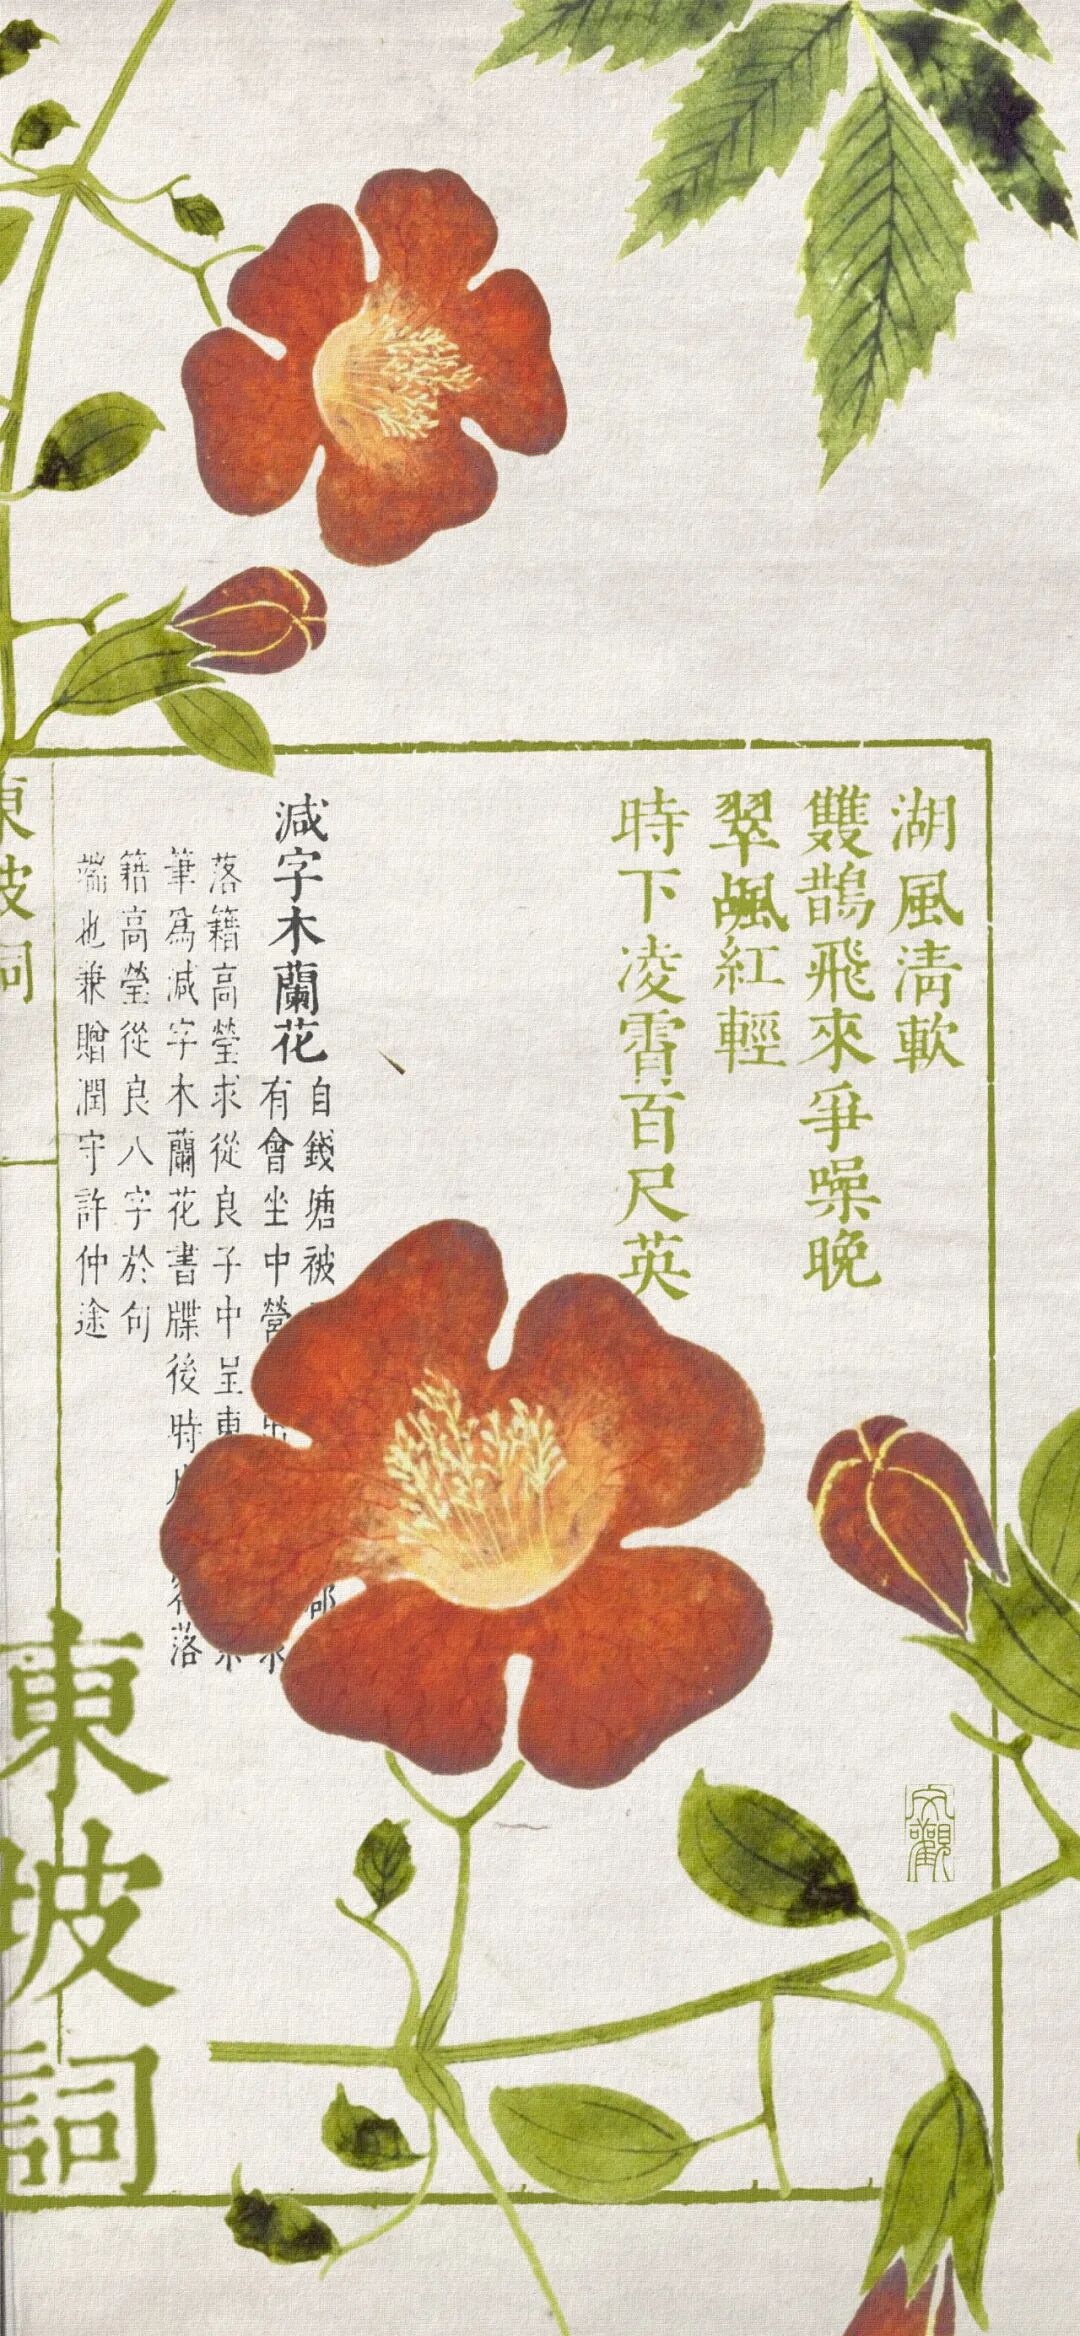 湖風清軟
雙鵲飛來爭噪晚
翠颭紅輕
時下凌霄百尺英
減字木蘭花
自錢塘被
有會坐中營
落籍高瑩求從良子中呈東
筆為減字木蘭花書牒後時
落
籍高瑩從良八字於句
端也兼贈潤守許仲途
東坡詞
東坡詞
文觀